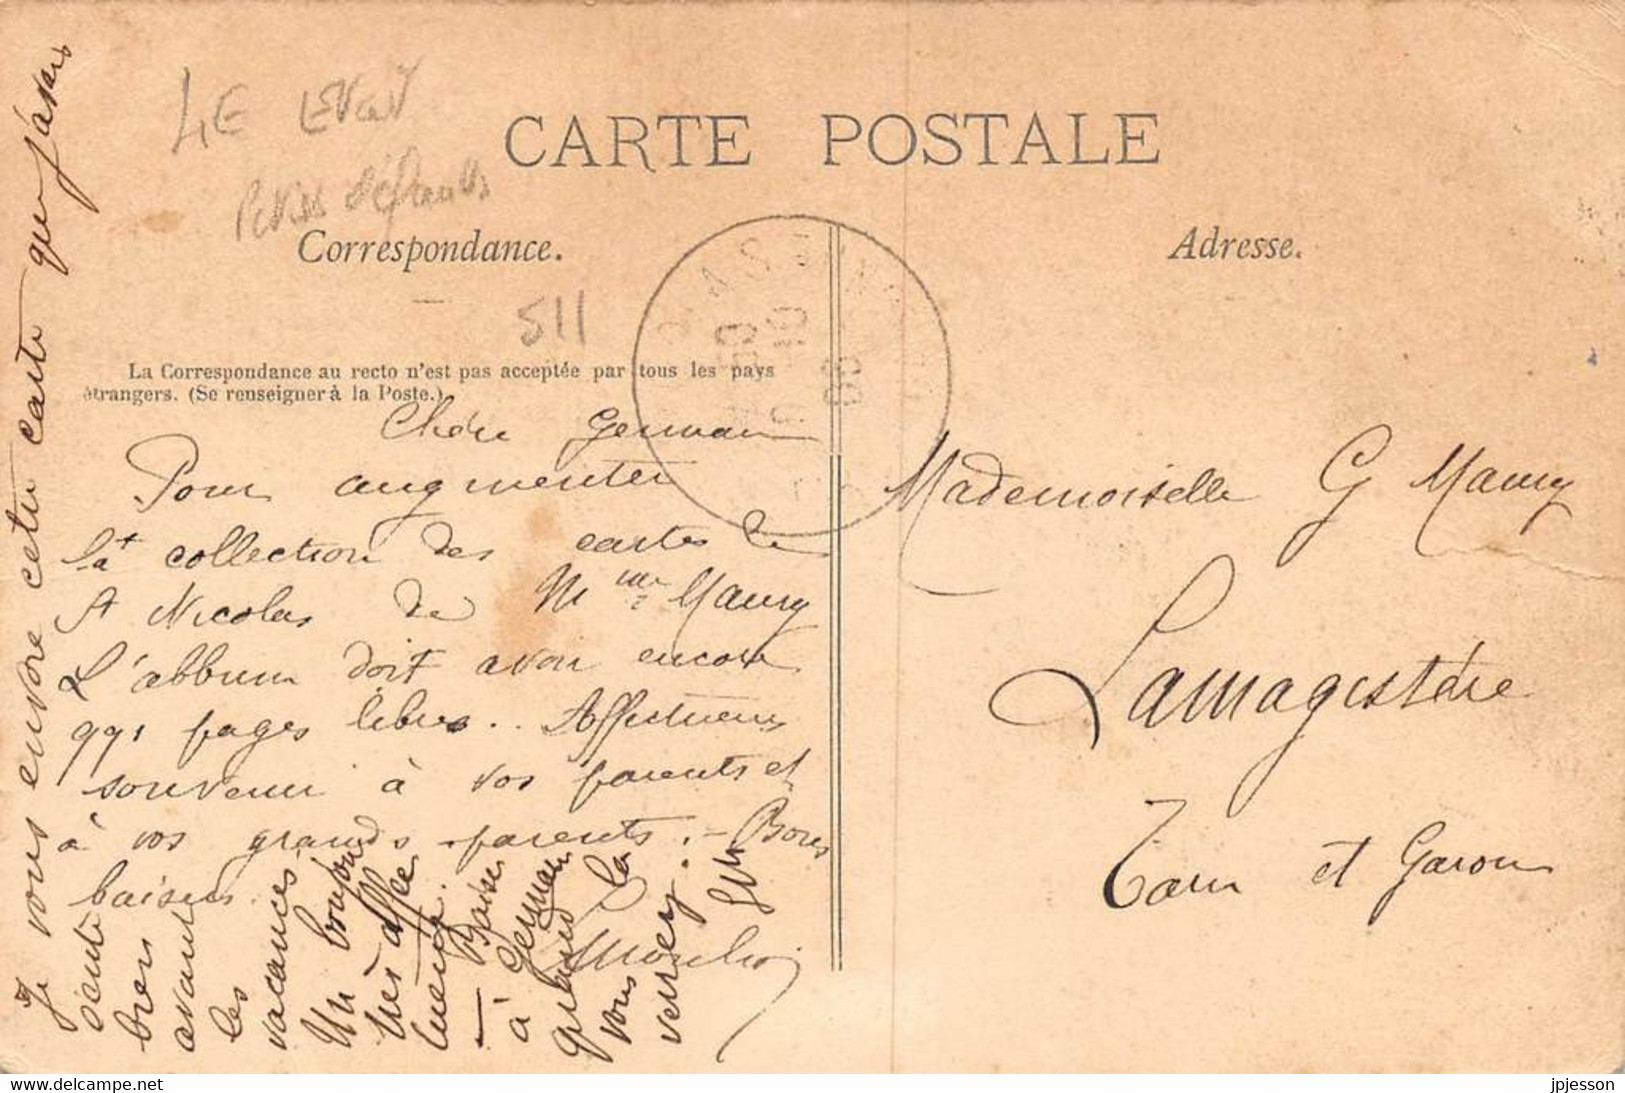 LE
petits défauts
CARTE POSTALE
Correspondance.
Adresse.
511
La Correspondance au recto n'est pas acceptée par tous les pays
étrangers. (Se renseigner à la Poste.)
Chère Germaine
Pour augmenter
la collection des cartes de
St Nicolas de Mme Maury
L'album doit avoir encore
991 pages libres.. Affectueux
souvenir à vos parents et
à vos grands parents. — Bons
baisers.
Je vous envoie cette carte que j'avais
écrite
bien
avant
les
vacances
Un bonjour
très affec
tueux.
— Baiser
à Germaine
quand
vous la
verrez.
Mademoiselle G Maury
Lamagistère
Tarn et Garonne
www.delcampe.net
jpjesson